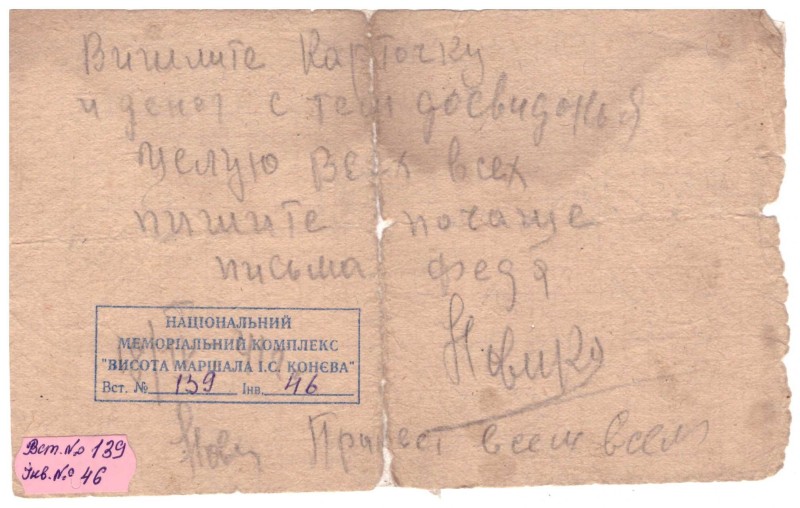 Вишлите Карточку
и денег с тем досвиданья
целую всех всех
пишите почаще
письма Федя
НАЦІОНАЛЬНИЙ
МЕМОРІАЛЬНИЙ КОМПЛЕКС
"ВИСОТА МАРШАЛА І.С. КОНЄВА"
Вст. № 139 Інв. 46
Привет всем всем
Вст. № 139
Інв. № 46